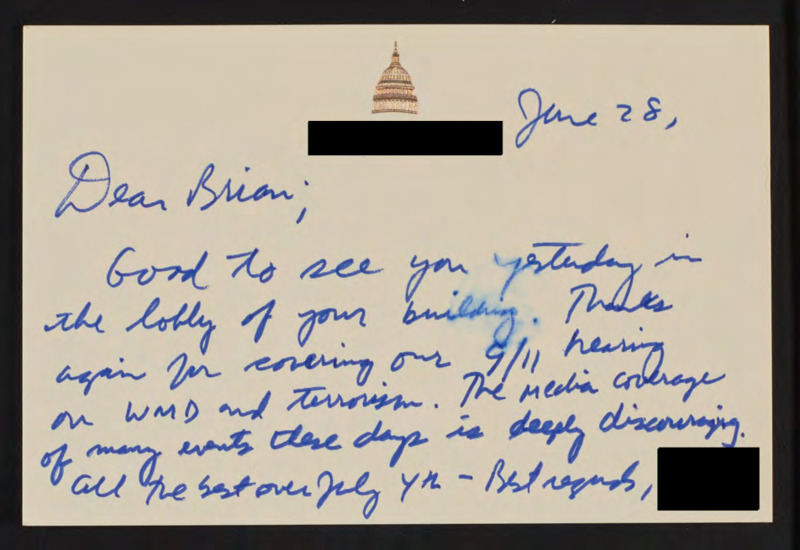 June 28,
Dear Brian;
Good to see you yesterday in
the lobby of your building. Thanks
again for covering our 9/11 hearing
on WMD and terrorism. The media coverage
of many events these days is deeply discouraging.
All the best over July 4th - Best regards,